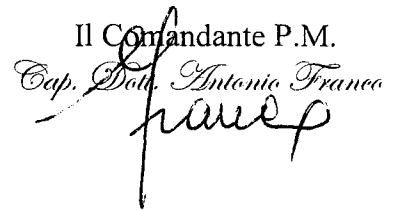 Il Comandante P.M.
Cap. Dott. Antonio Franco
Franco